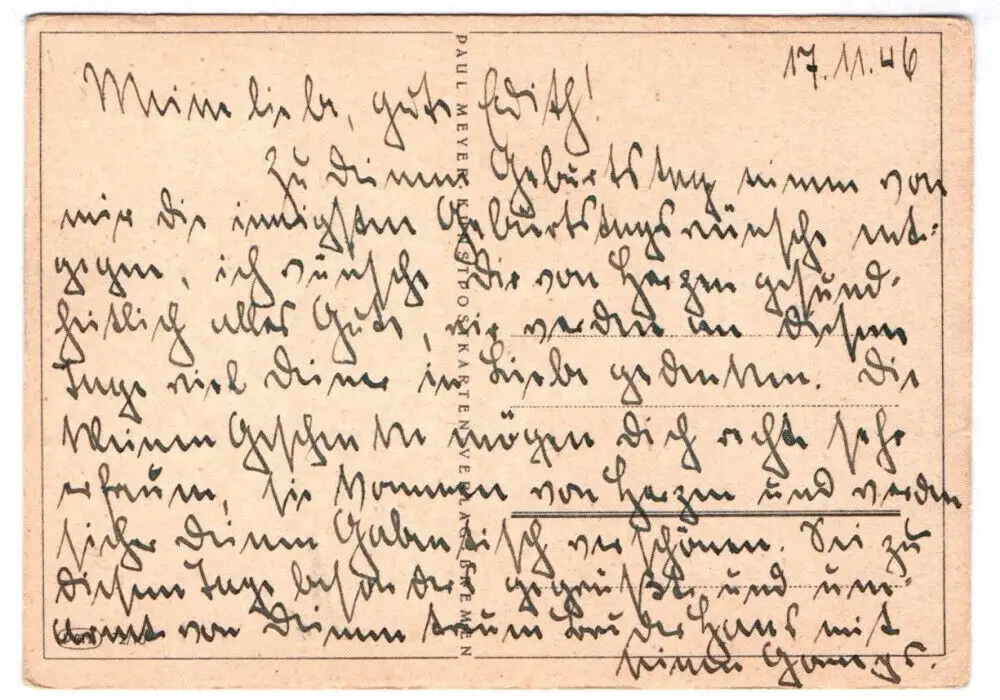 17.11.46
Meine liebe, gute Edith!
Zu Deinem Geburtstag nimm von
mir die innigsten Geburtstagswünsche ent-
gegen, ich wünsche Dir von Herzen gesund-
heitlich alles Gute, wir werden an diesem
Tage viel Deiner in Liebe gedenken. Die
kleinen Geschenke mögen Dich recht sehr
erfreun, sie kommen von Herzen und werden
sicher Deinen Gabentisch verschönen. Sei zu
diesem Tage besonders gegrüßt und um-
armt von Deinem treuen Bruder Hans mit
seinen
PAUL MEYER KUNSTPOSTKARTENVERLAG BREMEN